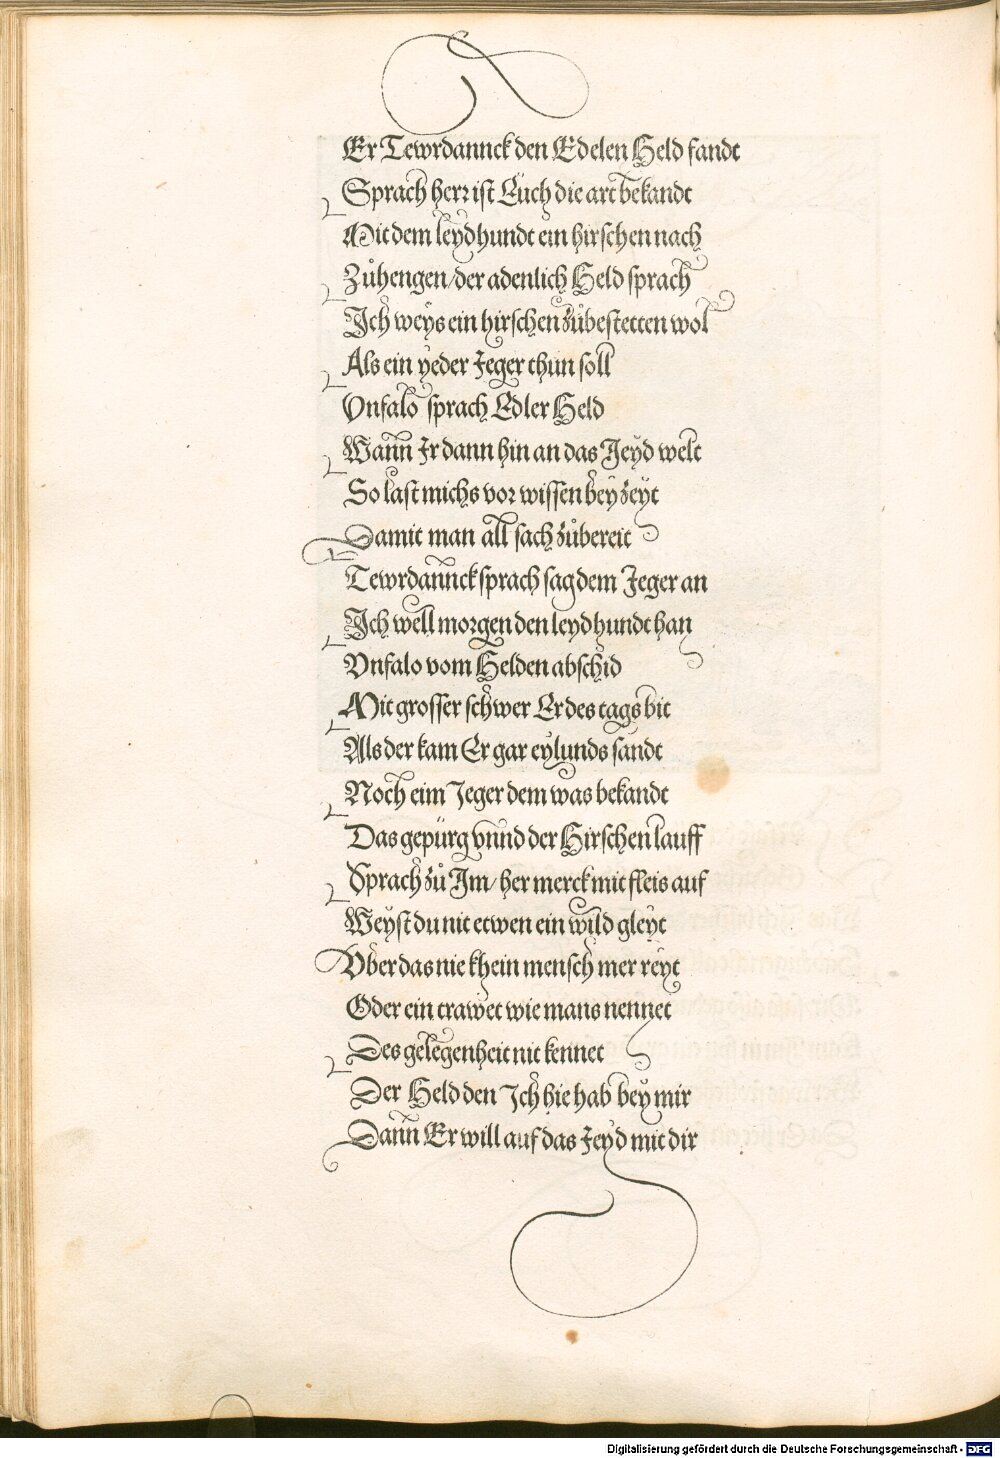 Er Tewrdannck den Edelen Held fandt
Sprach herr ist Euch die art bekandt
Mit dem leydhundt ein hirschen nach
Zůhengen/der adenlich Held sprach
Ich weÿs ein hirschen zůbestetten wol
Als ein ÿeder Jeger thun soll
Vnfalo sprach Edler Held
Wann Ir dann hin an das Jeÿd welt
So last michs vor wissen beÿ zeÿt
Damit man all sach zůbereit
Tewrdannck sprach sag dem Jeger an
Ich well morgen den leydhundt han
Vnfalo vom Helden abschid
Mit grosser schwer Er des tags bit
Als der kam Er gar eylunds sandt
Noch eim Jeger dem was bekandt
Das gepürg vnnd der Hirschen lauff
Sprach zů Im/ her merck mit fleis auf
Weÿst du nit etwen ein wild gleÿt
Vber das nie khein mensch mer reÿt
Oder ein trawet wie mans nennet
Des gelegenheit nit kennet
Der Held den Ich hie hab beÿ mir
Dann Er will auf das Jeÿd mit dir
Digitalisierung gefördert durch die Deutsche Forschungsgemeinschaft - DFG